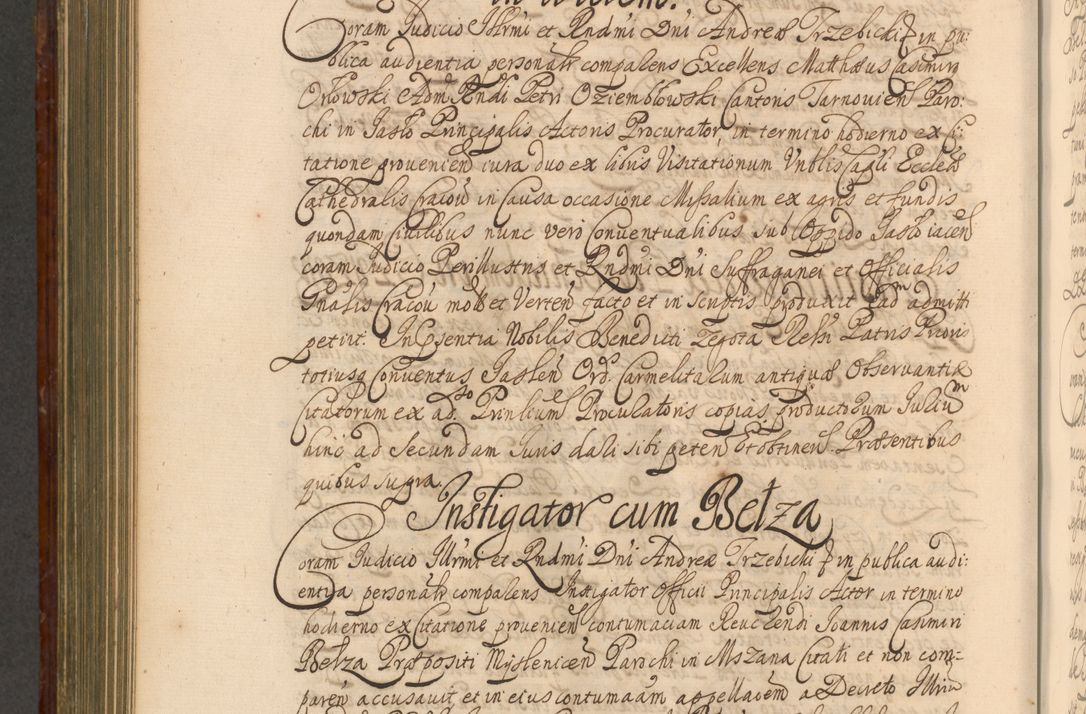 Coram Judicio Illrmi et Rndmi Dni Andreæ Trzebicki in pu-
blica audientia personalr comparens Excellens Matthæus Casimirus
Orłowski Adm Rndi Petri Oziembłowski Cantoris Tarnovien Paro:
chi in Jasło Principalis Actoris Procurator in termino hodierno ex Ci:
tatione provenien jura duo ex libris Visitationum Vnblis Capli Eccleæ
Cathedralis Cracov in Causa occasione Missalium ex agris et fundis
quondam Civilibus nunc vero Conventualibus sub Oppido Jasło iacen
coram Judicio Perillustris et Rndmi Dni Suffraganei et Officialis
Gnalis Cracov mot et Verten facto et in scriptis produxit eadm admitti
petiit. In Psentia Nobilis Benedicti Zegota Relsi Patris Prioris
totiusq Conventus Jaslen Ord. Carmelitarum antiquæ Observantiæ
Citatorum ex adso Prinlium Procuratoris copias productorum Jurium
hinc ad Secundam Juris dari sibi peten et obtinen. Præsentibus
quibus supra.
Instigator cum Bełza
Coram Judicio Illrmi et Rndmi Dni Andreæ Trzebicki in publica audi:
entia personalr comparens Instigator Officii Principalis Actor in termino
hodierno ex Citatione provenien contumaciam Reverendi Joannis Casimiri
Bełza Præpositi Myslenicen Parochi in Mszana Citati et non com-
paren accusavit et in eius contumaam appellaoem a Decreto Illrmi